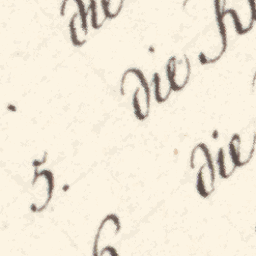 die
die
5. die
6